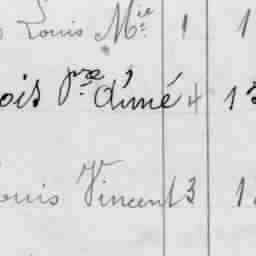 Louis Mie 1 1
ois pre d'Aimé 4 13
ouis Vincent 3 1